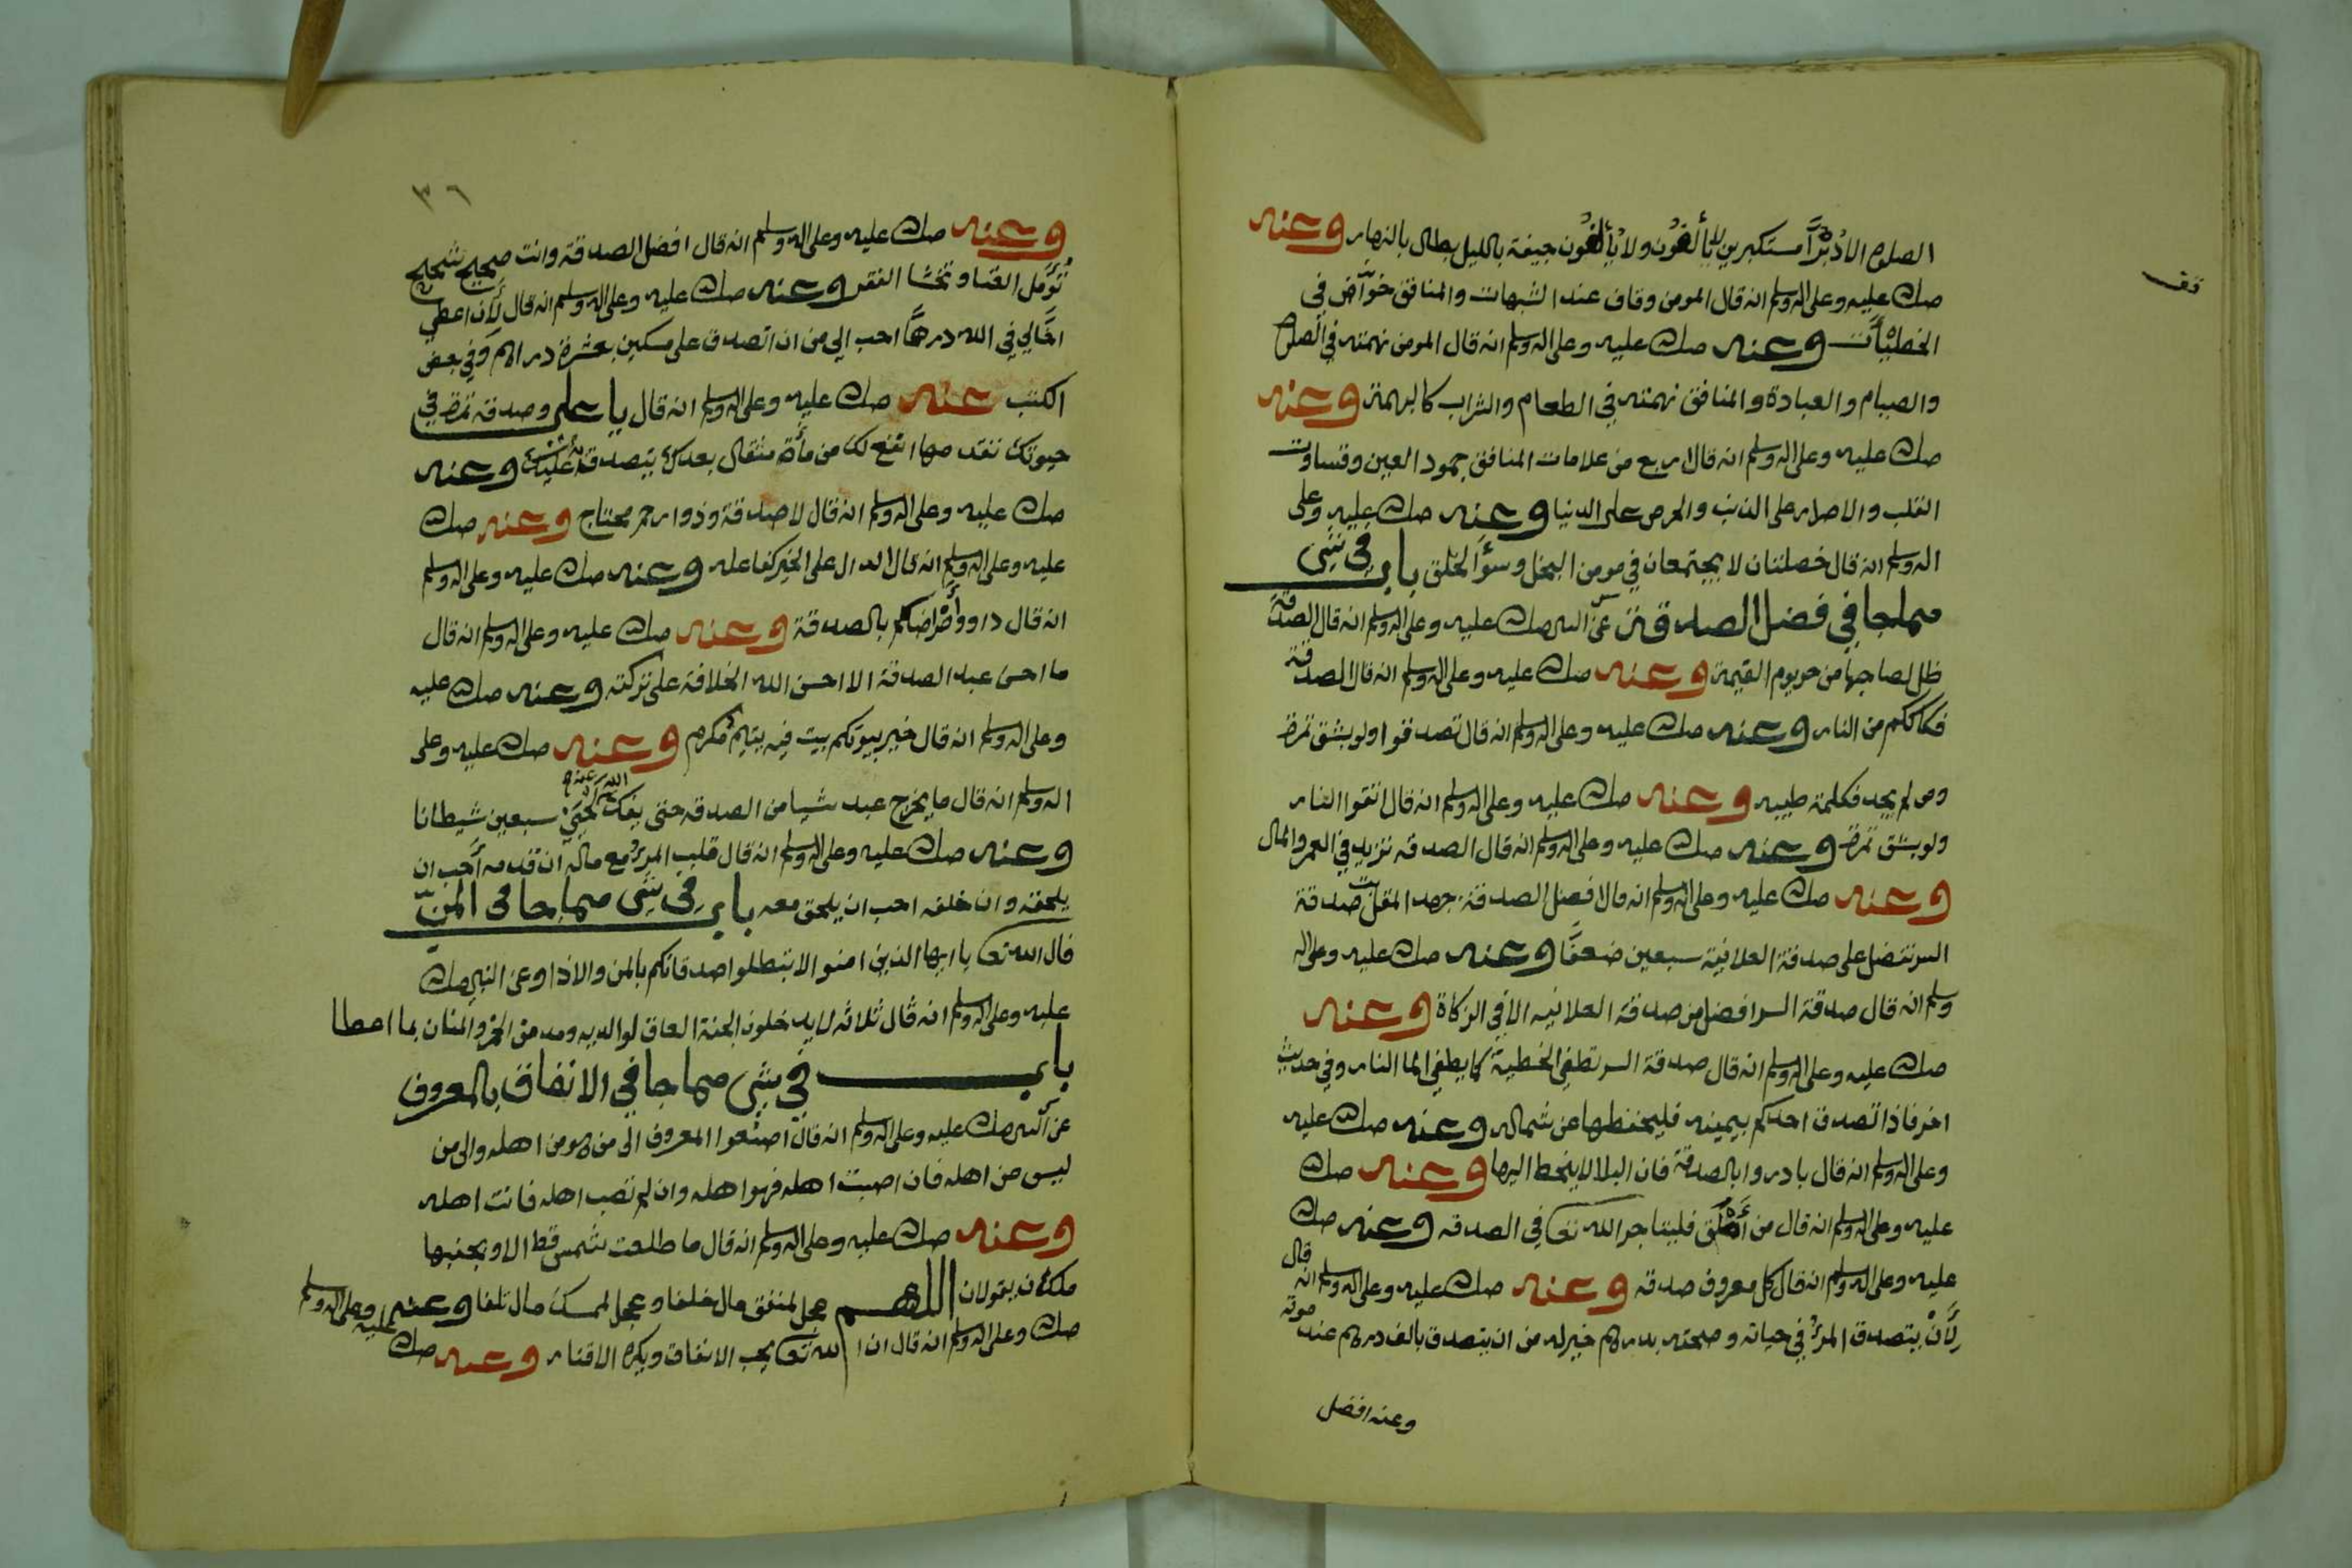 الصلوة الا دُبْرًا مستكبرين لا يأْلَفُون ولا يُأْلَفُون جيفة بالليل بطال بالنهار وعنه
صلى الله عليه وعلى اله وسلم انه قال المومن وقاف عند الشبهات والمنافق خوّاض في
وقف
الخطيّأت وعنه صلى الله عليه وعلى اله وسلم انه قال المومن نهمته في الصلوة
والصيام والعبادة والمنافق نهمته في الطعام والشراب كالبهمة وعنه
صلى الله عليه وعلى اله وسلم انه قال اربع من علامات المنافق جمود العين وقساوت
القلب والاصرار على الذنب والحرص على الدنيا وعنه صلى الله عليه وعلى
اله وسلم انه قال خصلتان لا يجتمعان في مومن البخل وسؤ الخلق باب في شي
مما جا في فضل الصدقة عن النبي صلى الله عليه وعلى اله وسلم انه قال الصدقة
ظل لصاحبها من حر يوم القيمة وعنه صلى الله عليه وعلى اله وسلم انه قال الصدقة
فكاككم من النار وعنه صلى الله عليه وعلى اله وسلم انه قال تصدقوا ولو بشق تمرة
ومن لم يجد فكلمة طيبه وعنه صلى الله عليه وعلى اله وسلم انه قال اتقوا النار
ولو بشق تمرة وعنه صلى الله عليه وعلى اله وسلم انه قال الصدقه تزيد في العمر والمال
وعنه صلى الله عليه وعلى اله وسلم انه قال افضل الصدقة جهد المقل صدقة
السر تفضل على صدقة العلانية سبعين ضعفًا وعنه صلى الله عليه وعلى اله
وسلم انه قال صدقة السر افضل من صدقة العلانيه الا في الزكاة وعنه
صلى الله عليه وعلى اله وسلم انه قال صدقة السر تطفي الخطية كما يطفي الما النار وفي حديث
اخر فاذا تصدق احدكم بيمينه فليخفها عن شماله وعنه صلى الله عليه
وعلى اله وسلم انه قال بادروا بالصدقة فان البلا لا يتخطا اليها وعنه صلى الله
عليه وعلى اله وسلم انه قال من أملق فليتاجر الله تعا في الصدقه وعنه صلى الله
عليه وعلى اله وسلم انه قال كل معروف صدقه وعنه صلى الله عليه وعلى اله وسلم انه قال
لَأَنْ يتصدق المرؤ في حياته وصحته بدرهم خير له من ان يتصدق بالف درهم عند موته
وعنه افضل
٣٦
وعنه صلى الله عليه وعلى اله وسلم انه قال افضل الصدقة وانت صحيح شحيح
تُؤمّل الغنا وتخشا الفقر وعنه صلى الله عليه وعلى اله وسلم انه قال لأن اعطي
اخًا لي في الله درهمًا احب الي من ان اتصدق على مسكين بعشرة دراهم وفي بعض
الكتب عنه صلى الله عليه وعلى اله وسلم انه قال يا علي وصدقه تمرة في
حيوتك تقدمها انفع لك من مأة مثقال بعدك يتصدق به عليك وعنه
صلى الله عليه وعلى اله وسلم انه قال لا صدقة وذوا رحم محتاج وعنه صلى الله
عليه وعلى اله وسلم انه قال الدال على الخير كفاعله وعنه صلى الله عليه وعلى اله وسلم
انه قال داووا أمراضكم بالصدقة وعنه صلى الله عليه وعلى اله وسلم انه قال
ما احسن عبد الصدقة الا احسن الله الخلافة على تركته وعنه صلى الله عليه
وعلى اله وسلم انه قال خير بيوتكم بيت فيه يتيم مُكرم وعنه صلى الله عليه وعلى
اله وسلم انه قال ما يخرج عبد شيا من الصدقه حتى يفك الله عنه لحيي سبعين شيطانا
وعنه صلى الله عليه وعلى اله وسلم انه قال قلب المرؤ مع ماله ان قدمه أحب ان
يلحقه وان خلفه احب ان يلحق معه باب في شي مما جا في المنّ
قال الله تعا يا ايها الذين امنوا لا تبطلوا صدقاتكم بالمن والاذا وعن النبي صلى الله
عليه وعلى اله وسلم انه قال ثلاثه لا يدخلون الجنة العاق لوالديه ومدمن الخمر والمنان بما اعطا
باب في شي مما جا في الانفاق بالمعروف
عن النبي صلى الله عليه وعلى اله وسلم انه قال اصنعوا المعروف الى من هو من اهله والى من
ليس من اهله فان اصبت اهله فهو اهله وان لم تصب اهله فانت اهله
وعنه صلى الله عليه وعلى اله وسلم انه قال ما طلعت شمس قط الا وبجنبها
ملكان يقولان اللهم عجل لمنفق مال خلفا وعجل لممسك مال تلفا وعنه
صلى الله عليه وعلى اله وسلم انه قال ان الله تعا يحب الانفاق ويكره الاقتار وعنه صلى الله